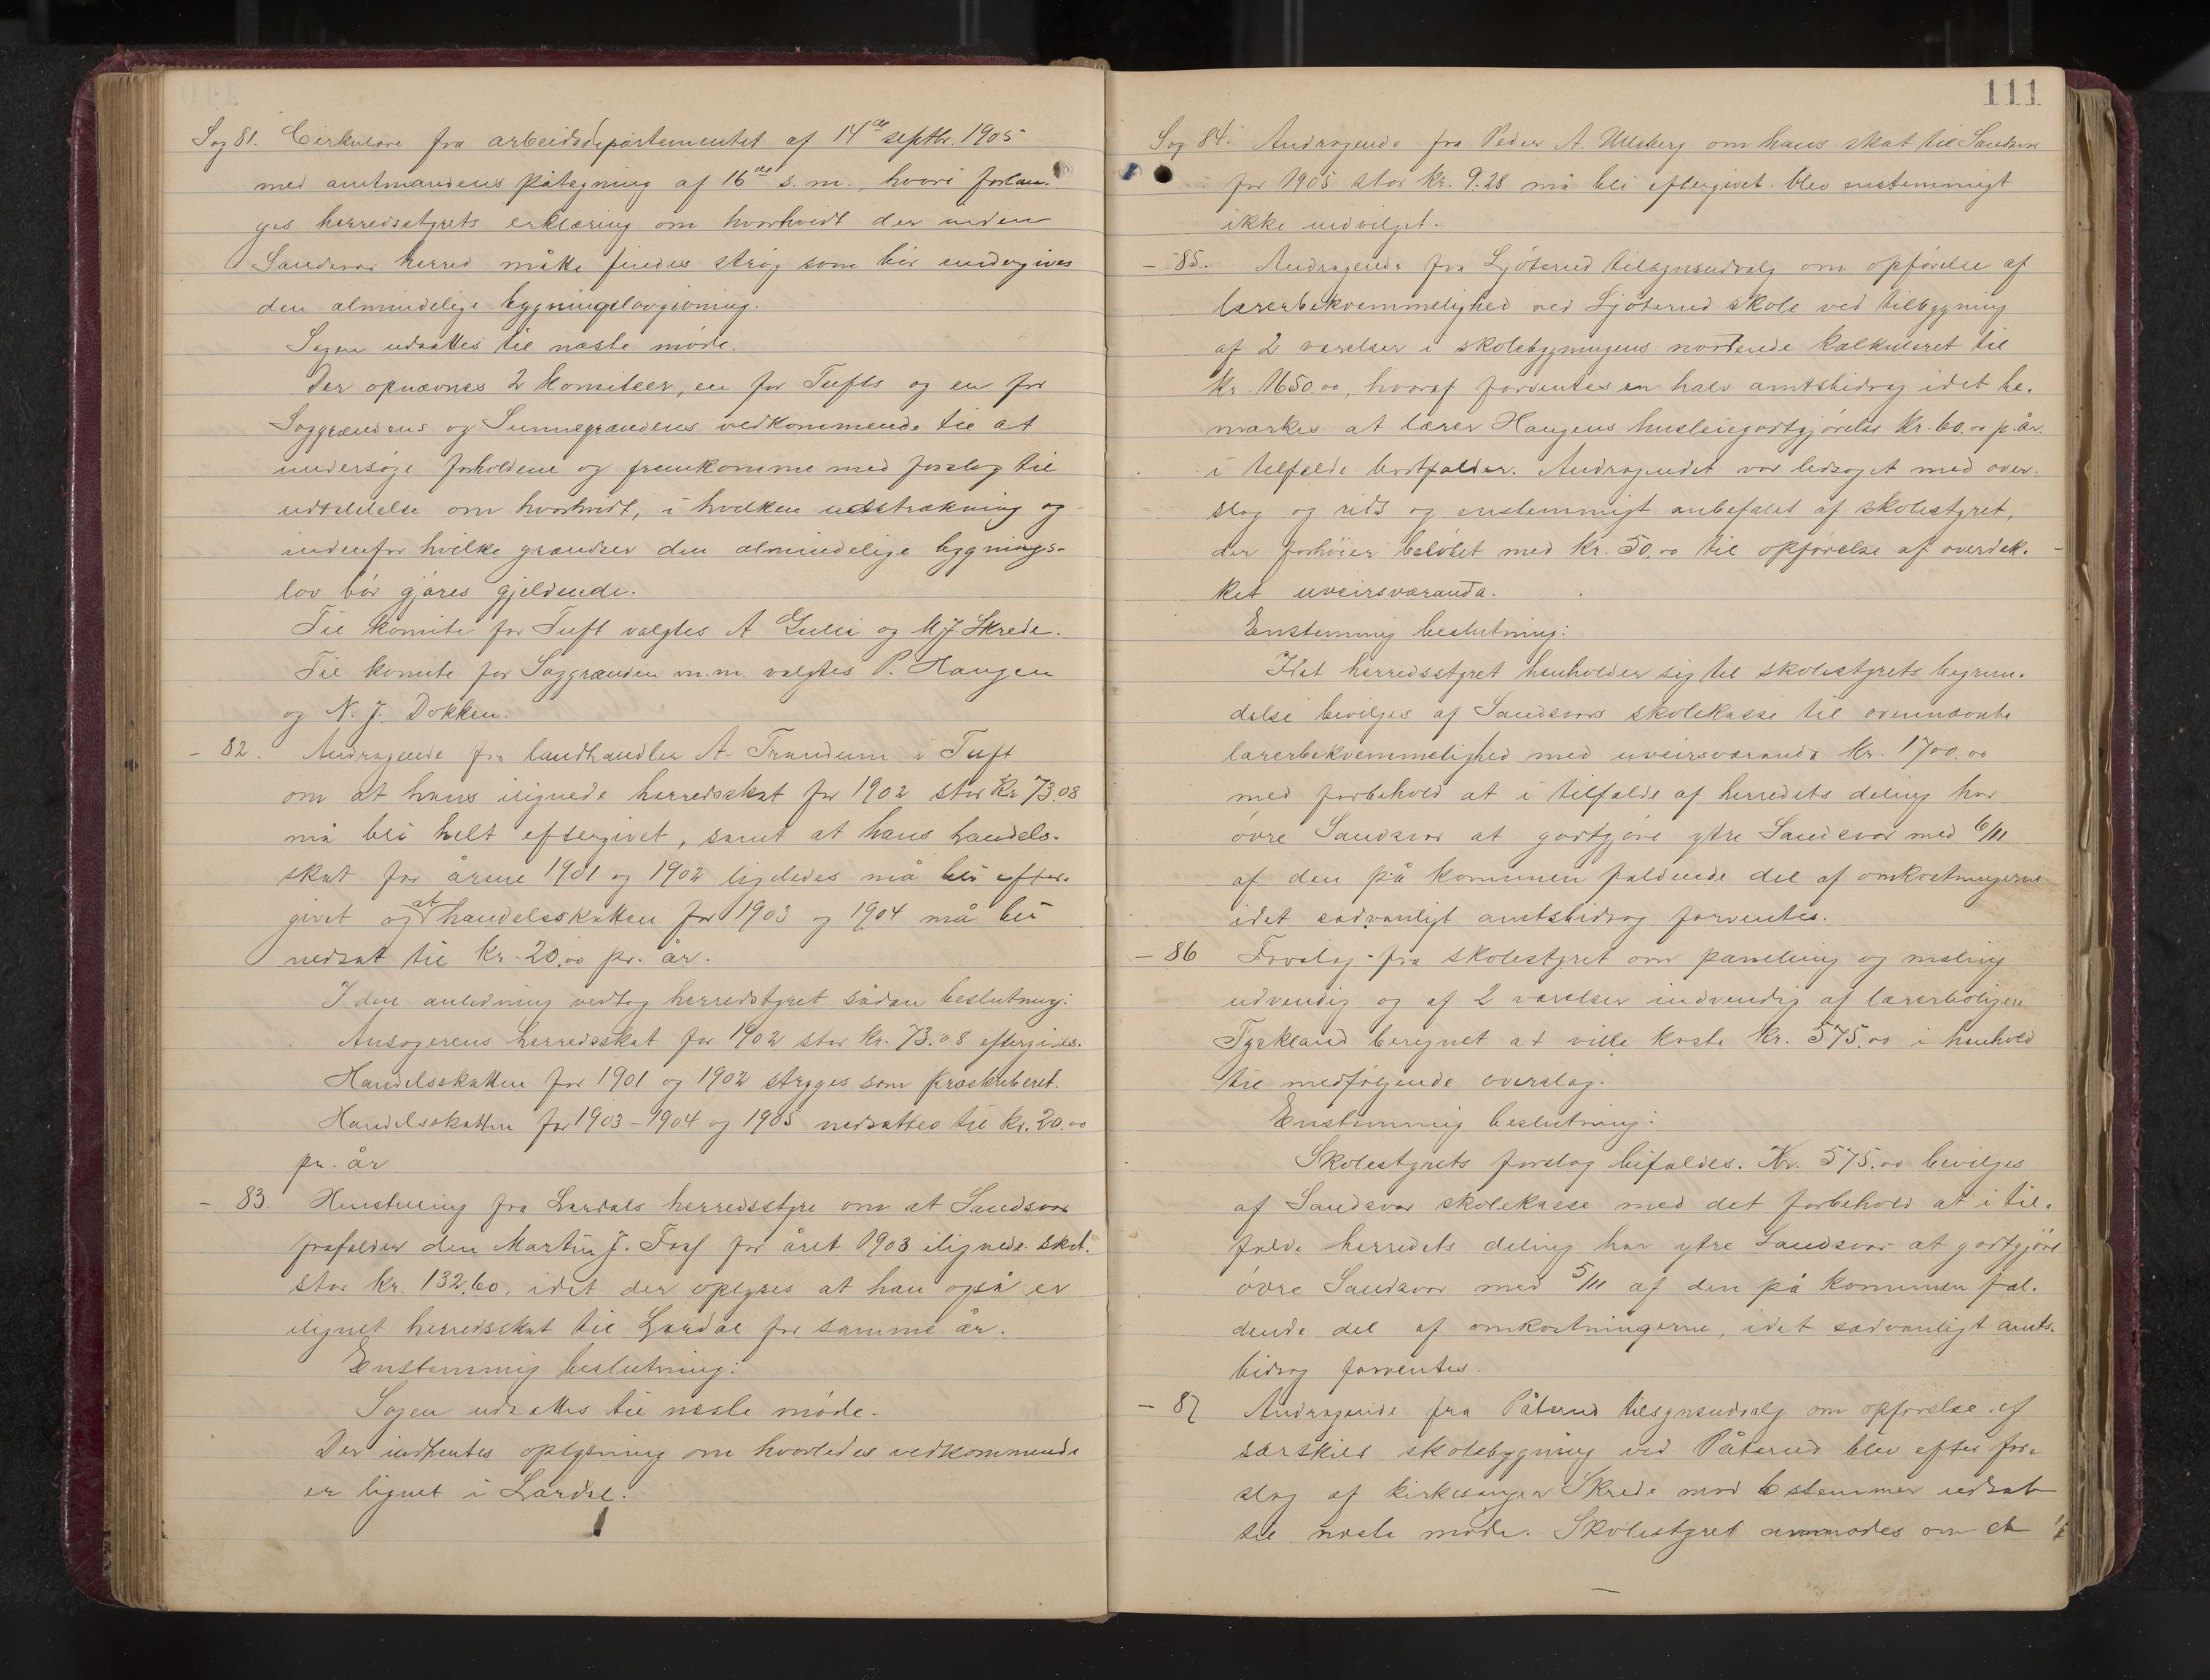 Sag 81. Cirkulære fra arbeidsdepartementet af 14de septbr. 1905
med amtmandens påtegning af 16de s.m., hvori forlan-
ges herredsstyrets erklæring om hvorhvidt der inden
Sandsvær herred måtte findes strøg som bør undergives
den almindelige bygningslovgivning.
Sagen udsættes til næste møde.
Der opnævnes 2 komiteer, en for Tufts og en for
Saggrændens og Sunnegrændens vedkommende til at
undersøge forholdene og fremkomme med forslag til
udtalelse om hvorhvidt, i hvilken udstrækning og
indenfor hvilke grændser den almindelige bygnings-
lov bør gjøres gjeldende.
Til komite for Tuft valgtes A Gulli og M.J. Skrede.
Til komite for Saggrænden m.m. valgtes P. Haugen
og N. J. Dokken.
- 82. Andragende fra landhandler A. Trandum i Tuft
om at hans ilignede herredsskat for 1902 stor Kr 73.08
må bli helt eftergivet, samt at hans handels-
skat for årene 1901 og 1902 ligeledes må bli efter-
givet og at handelsskatten for 1903 og 1904 må bli
nedsat til Kr. 20.00 pr. år.
I den anledning vedtog herredstyret sådan beslutning:
Ansøgerens herredsskat for 1902 stor Kr. 73.08 eftergives.
Handelsskatten for 1901 og 1902 stryges som præskriberet.
Handelsskatten for 1903 - 1904 og 1905 nedsættes til Kr. 20.00
pr. år
- 83. Henstilling fra Lardals herredsstyre om at Sandsvær
frafalder den Martin J. Foss for året 1903 ilignede skat.
stor Kr. 132.60, idet der oplyses at han også er
ilignet herredsskat til Lardal for samme år.
Enstemmig beslutning:
Sagen udsættes til næste møde.
Der indhentes oplysning om hvorledes vedkommende
er lignet i Lardal.
111
Sag 84. Andragende fra Peder A. Ulleberg om hans skat til Sandsvær
for 1905 stor Kr. 9.28 må bli eftergivet. blev enstemmigt
ikke indvilget.
- 85. Andragende fra Ljøterud tilsynsudvalg om opførelse af
lærerbekvemmelighed ved Ljøterud skole ved tilbygning
af 2 værelser i skolebygningens nordende kalkuleret til
Kr. 1650.00, hvoraf forventes en halv amtsbidrag idet be-
mærkes at lærer Haugens husleiegodtgjørelse Kr. 60.00 p. år.
i tilfælde bortfalder. Andragendet var ledsaget med over-
slag og rids og enstemmigt anbefalet af skolestyret,
der forhøier beløbet med Kr. 50.00 til opførelse af overdæk-
ket uveirsveranda.
Enstemmig beslutning:
Idet herredsstyret henholder sig til skolestyrets begrun-
delse bevilges af Sandsvær skolekasse til ovennævnte
lærerbekvemmelighed med uveirsveranda Kr. 1700.00
med forbehold at i tilfælde af herredets deling har
øvre Sandsvær at godtgjøre ytre Sandsvær med 6/11
af den på kommunen faldende del af omkostningerne
idet sædvanligt amtsbidrag forventes.
- 86 Forslag fra skolestyret om paneling og maling
udvendig og af 2 værelser indvendig af lærerboligen
Tyskland beregnet at ville koste Kr. 575.00 i henhold
til medfølgende overslag.
Enstemmig beslutning:
Skolestyrets forslag bifaldes. Kr. 575.00 bevilges
af Sandsvær skolekasse med det forbehold at i til-
fælde herredets deling har ytre Sandsvær at godtgjøre
øvre Sandsvær med 5/11 af den på kommunen fal-
dende del af omkostningerne, idet sædvanligt amts-
bidrag forventes.
- 87 Andragende fra Påterud tilsynsudvalg om opførelse af
særskilt skolebygning ved Påterud blev efter for-
slag af kirkesanger Skrede mod 6 stemmer udsat
til næste møde. Skolestyret anmodes om et